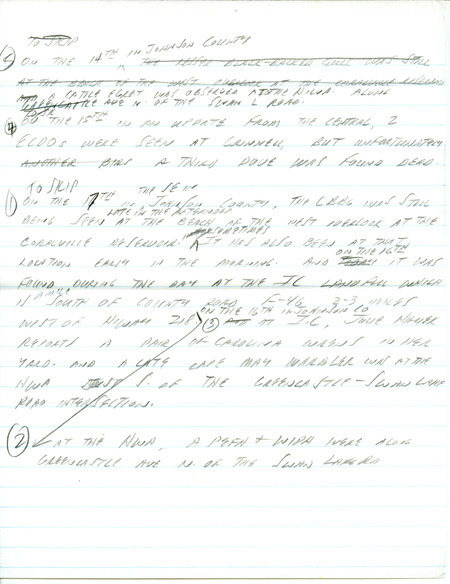 TO SKIP
⑤ ON THE 14TH IN JOHNSON COUNTY THE LESSER BLACK-BACKED GULL WAS STILL
AT THE BEACH OF THE WEST OVERLOOK AT THE CORALVILLE RESERVOIR
A CATTLE EGRET WAS OBSERVED AT THE NWA ALONG
GREENCASTLE AVE N. OF THE SWAN L ROAD.
④ ON THE 15TH IN AN UPDATE FROM THE CENTRAL, 2
ECDOS WERE SEEN AT GRINNELL, BUT UNFORTUNATELY
ANOTHER BIRD A THIRD DOVE WAS FOUND DEAD.
TO SKIP THE SE IN
① ON THE 17TH IN JOHNSON COUNTY, THE LBBG WAS STILL
LATE IN THE AFTERNOON
BEING SEEN AT THE BEACH OF THE WEST OVERLOOK AT THE
SOMETIMES
CORALVILLE RESERVOIR. IT HAS ALSO BEEN AT THAT
ON THE 16TH
LOCATION EARLY IN THE MORNING. AND IT WAS
FOUND DURING THE DAY AT THE IC LANDFILL WHICH
A MILE
IS SOUTH OF COUNTY ROAD F-46 2-3 MILES
ON THE 16TH IN JOHNSON CO
WEST OF HIWAY 218. ③ AT IC, JULIE
REPORTS A PAIR OF CAROLINA WRENS IN HER
YARD. AND A LATE CAPE MAY WARBLER WAS AT THE
NWA JUST S. OF THE GREENCASTLE-SWAN LAKE
ROAD INTERSECTION.
② AT THE NWA, A PEFA + WIPH WERE ALONG
GREENCASTLE AVE N. OF THE SWAN LAKE RD